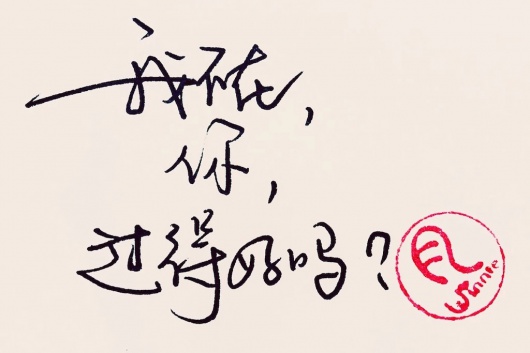 我不在,
你,
过得好吗?
Winnie